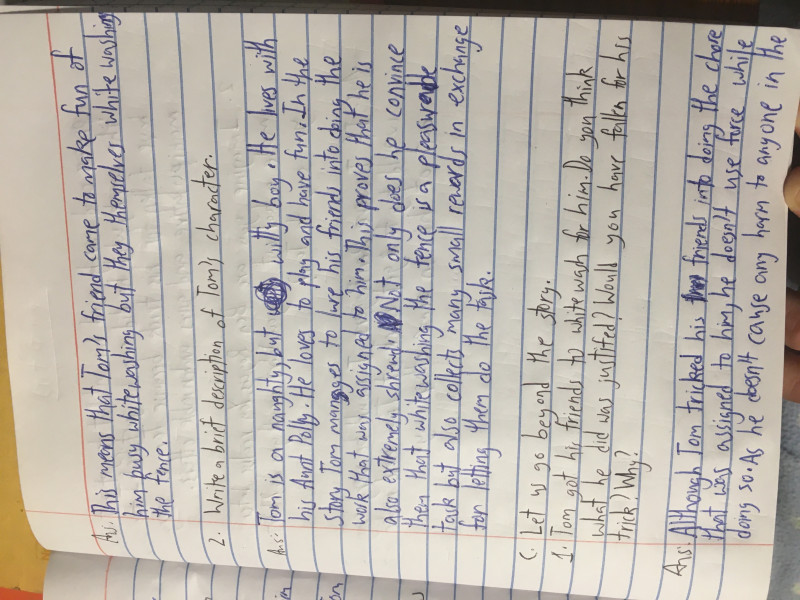 Ans. This means that Tom's friend came to make fun of
him busy whitewashing but they themselves white washing
the fence.
2. Write a brief description of Tom's character.
Ans: Tom is a naughty, but witty boy. He lives with
his Aunt Polly. He loves to play and have fun. In the
Story Tom manages to lure his friends into doing the
work that was assigned to him. This proves that he is
also extremely shrewd. Not only does he convince
them that whitewashing the fence is a pleasureable
task but also collects many small rewards in exchange
for letting them do the task.
C. Let us go beyond the story.
1. Tom got his friends to white wash for him. Do you think
what he did was justified? Would you have fallen for his
trick? Why?
Ans: Although Tom tricked his friends into doing the chore
that was assigned to him, he doesn't use force while
doing so. As he doesn't cause any harm to anyone in the